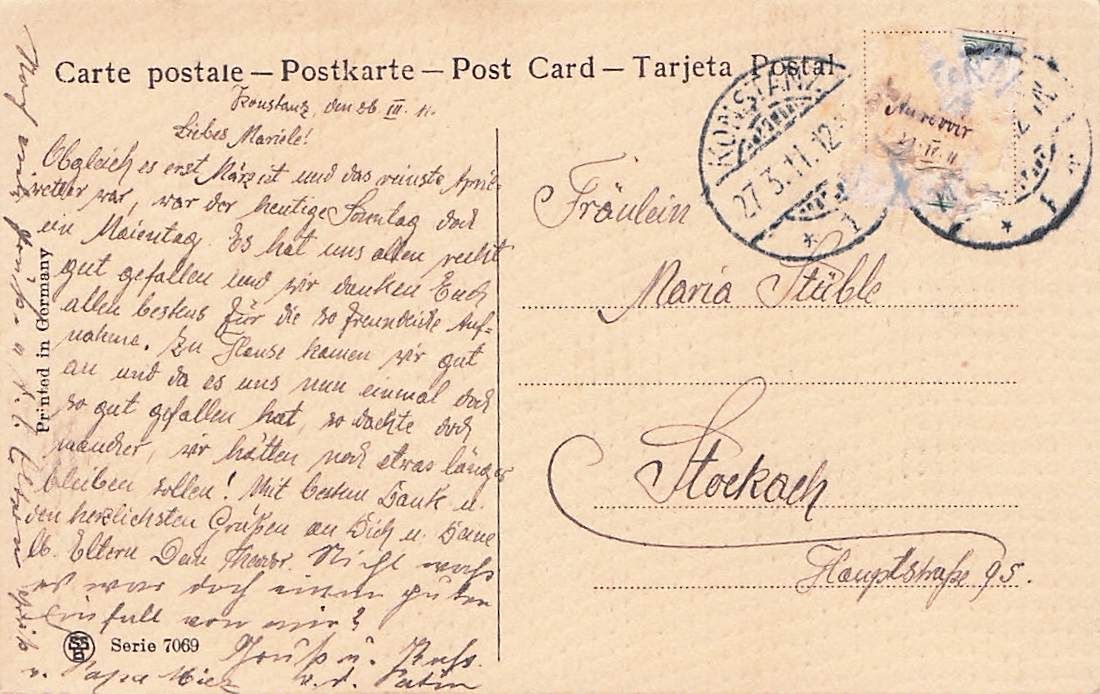 Carte postale — Postkarte — Post Card — Tarjeta Postal
Konstanz, den 26 III. 11.
Liebes Mariele!
Obgleich es erst März ist und das reinste April-
wetter war, war der heutige Sonntag doch
ein Maientag. Es hat uns allen recht
gut gefallen und wir danken Euch
allen bestens für die so freundliche Auf-
nahme. Zu Hause kamen wir gut
an und da es uns nun einmal doch
so gut gefallen hat, so dachte doch
mancher, wir hätten noch etwas länger
bleiben sollen! Mit bestem Dank u.
den herzlichsten Grüßen an Dich u. Deine
lb. Eltern Dein Theodor. Nicht wahr
es war doch einen guten
Einfall von mir?
Gruß u. Kuss
v. d. Patin
v. Papa
Printed in Germany
Serie 7069
KONSTANZ
27.3.11.12
* 1
Au revoir
Fräulein
Maria Stüble
Stockach
Hauptstraße 95.